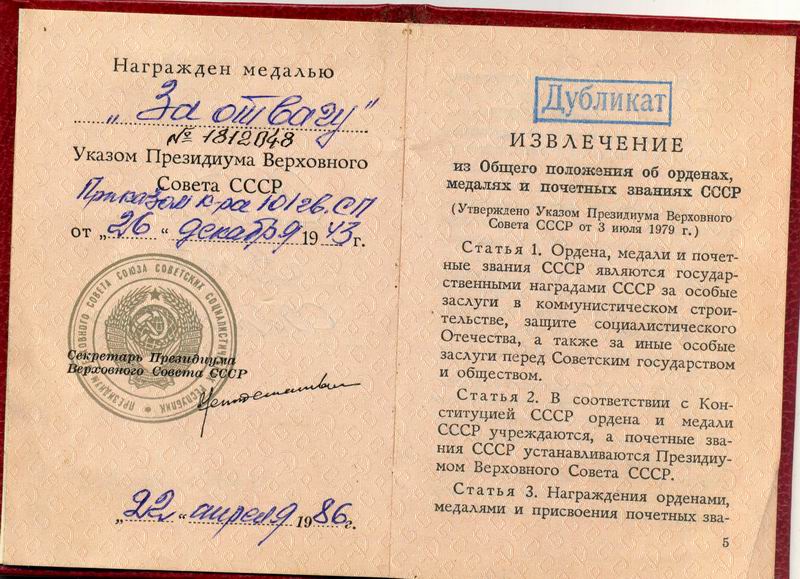 Награжден медалью
„За отвагу“
№ 1812048
Указом Президиума Верховного
Совета СССР
Приказом к-ра 101 гв. СП
от „ 26 “ декабря 1943 г.
ПРЕЗИДИУМ ВЕРХОВНОГО СОВЕТА СОЮЗА СОВЕТСКИХ СОЦИАЛИСТИЧЕСКИХ РЕСПУБЛИК
Секретарь Президиума
Верховного Совета СССР
„ 22 “ апреля 1986 г.
Дубликат
ИЗВЛЕЧЕНИЕ
из Общего положения об орденах,
медалях и почетных званиях СССР
(Утверждено Указом Президиума Верховного
Совета СССР от 3 июля 1979 г.)
Статья 1. Ордена, медали и почет-
ные звания СССР являются государ-
ственными наградами СССР за особые
заслуги в коммунистическом строи-
тельстве, защите социалистического
Отечества, а также за иные особые
заслуги перед Советским государством
и обществом.
Статья 2. В соответствии с Кон-
ституцией СССР ордена и медали
СССР учреждаются, а почетные зва-
ния СССР устанавливаются Президиу-
мом Верховного Совета СССР.
Статья 3. Награждения орденами,
медалями и присвоения почетных зва-
5